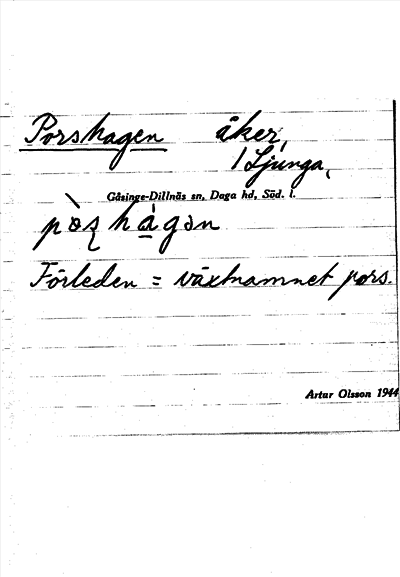 Porshagen åker,
1 Ljunga,
Gåsinge-Dillnäs sn, Daga hd, Söd. l.
pòʂ hàgən
Förleden = växtnamnet pors.
Artur Olsson 1944